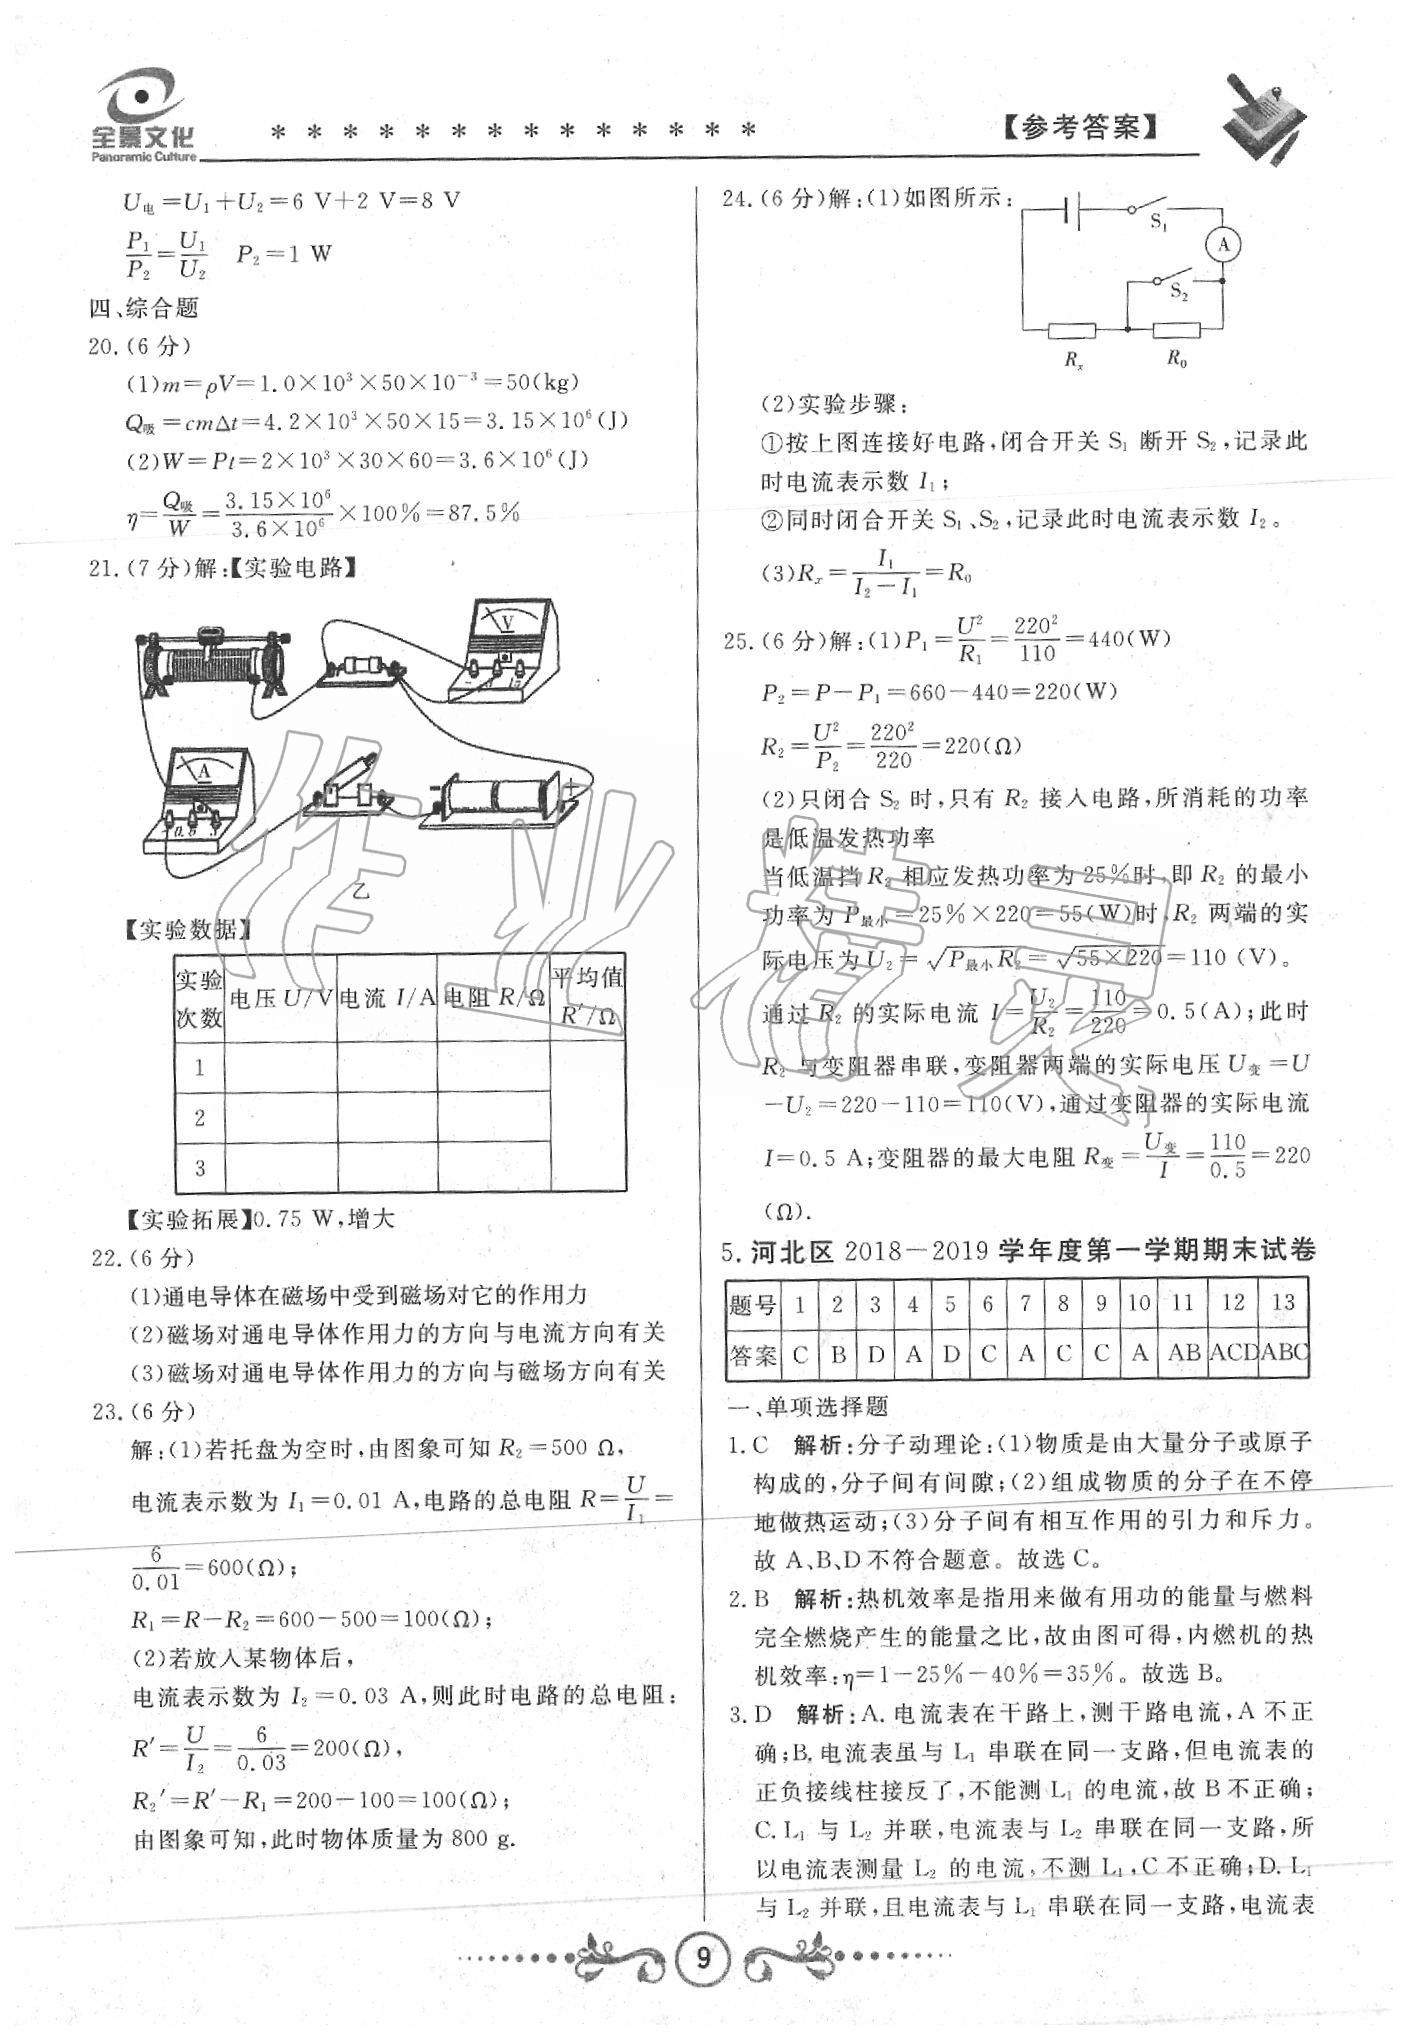 全景文化
Panoramic Culture
* * * * * * * * * * * * * *
【参考答案】
U电=U₁+U₂=6 V+2 V=8 V
P₁/P₂=U₁/U₂ P₂=1 W
四、综合题
20.(6 分)
(1)m=ρV=1.0×10³×50×10⁻³=50(kg)
Q吸=cmΔt=4.2×10³×50×15=3.15×10⁶(J)
(2)W=Pt=2×10³×30×60=3.6×10⁶(J)
η=Q吸/W=3.15×10⁶/3.6×10⁶×100%=87.5%
21.(7 分)解:【实验电路】
V
A
- 0.6 3
- +
乙
【实验数据】
实验次数 电压 U/V 电流 I/A 电阻 R/Ω 平均值 R′/Ω
1
2
3
【实验拓展】0.75 W,增大
22.(6 分)
(1)通电导体在磁场中受到磁场对它的作用力
(2)磁场对通电导体作用力的方向与电流方向有关
(3)磁场对通电导体作用力的方向与磁场方向有关
23.(6 分)
解:(1)若托盘为空时,由图象可知 R₂=500 Ω,
电流表示数为 I₁=0.01 A,电路的总电阻 R=U/I₁=
6/0.01=600(Ω);
R₁=R-R₂=600-500=100(Ω);
(2)若放入某物体后,
电流表示数为 I₂=0.03 A,则此时电路的总电阻:
R′=U/I₂=6/0.03=200(Ω),
R₂′=R′-R₁=200-100=100(Ω);
由图象可知,此时物体质量为 800 g.
24.(6 分)解:(1)如图所示:
S₁
A
S₂
Rₓ R₀
(2)实验步骤:
①按上图连接好电路,闭合开关 S₁ 断开 S₂,记录此
时电流表示数 I₁;
②同时闭合开关 S₁、S₂,记录此时电流表示数 I₂。
(3)Rₓ=I₁/(I₂-I₁)=R₀
25.(6 分)解:(1)P₁=U²/R₁=220²/110=440(W)
P₂=P-P₁=660-440=220(W)
R₂=U²/P₂=220²/220=220(Ω)
(2)只闭合 S₂ 时,只有 R₂ 接入电路,所消耗的功率
是低温发热功率
当低温挡 R₂ 相应发热功率为 25%时,即 R₂ 的最小
功率为 P最小=25%×220=55(W)时,R₂ 两端的实
际电压为 U₂=√(P最小R₂)=√(55×220)=110 (V)。
通过 R₂ 的实际电流 I=U₂/R₂=110/220=0.5(A);此时
R₂ 与变阻器串联,变阻器两端的实际电压 U变=U
-U₂=220-110=110(V),通过变阻器的实际电流
I=0.5 A;变阻器的最大电阻 R变=U变/I=110/0.5=220
(Ω).
5. 河北区 2018-2019 学年度第一学期期末试卷
题号 1 2 3 4 5 6 7 8 9 10 11 12 13
答案 C B D A D C A C C A AB ACD ABC
一、单项选择题
1.C 解析:分子动理论:(1)物质是由大量分子或原子
构成的,分子间有间隙;(2)组成物质的分子在不停
地做热运动;(3)分子间有相互作用的引力和斥力。
故 A、B、D 不符合题意。故选 C。
2.B 解析:热机效率是指用来做有用功的能量与燃料
完全燃烧产生的能量之比,故由图可得,内燃机的热
机效率:η=1-25%-40%=35%。故选 B。
3.D 解析:A.电流表在干路上,测干路电流,A 不正
确;B.电流表虽与 L₁ 串联在同一支路,但电流表的
正负接线柱接反了,不能测 L₁ 的电流,故 B 不正确;
C.L₁ 与 L₂ 并联,电流表与 L₂ 串联在同一支路,所
以电流表测量 L₂ 的电流,不测 L₁,C 不正确;D.L₁
与 L₂ 并联,且电流表与 L₁ 串联在同一支路,电流表
9
作业精灵